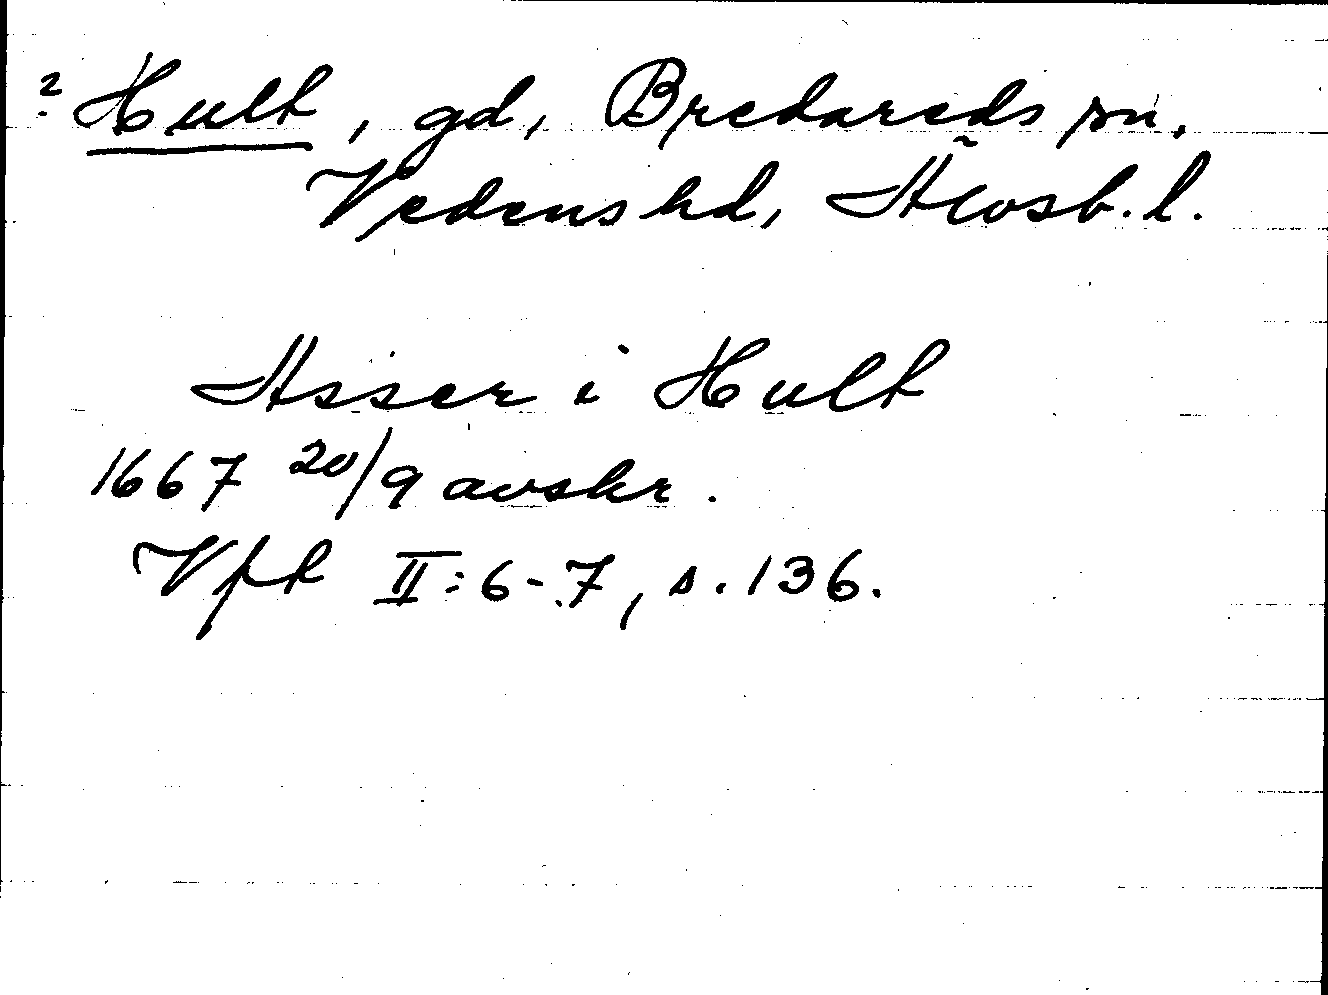 ? Hult, gd, Bredareds sn,
Vedens hd, Älvsb. l.
Asser i Hult
1667 20/9 avskr.
Vfr II:6-7, s. 136.